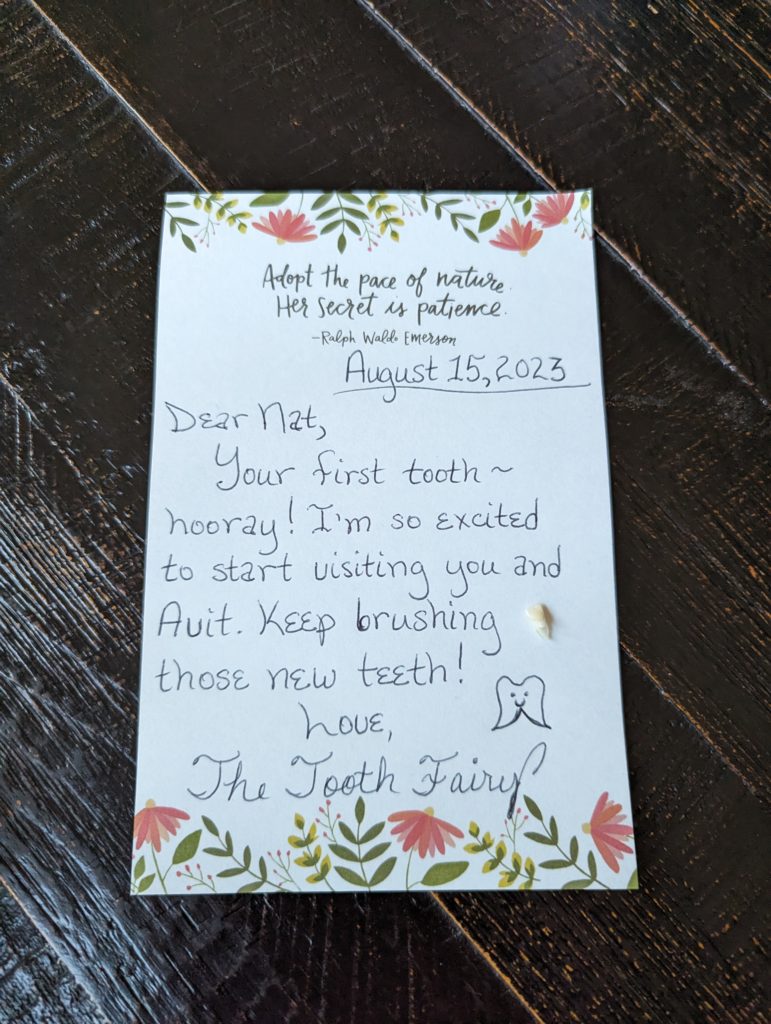 Adopt the pace of nature.
Her secret is patience.
-Ralph Waldo Emerson
August 15, 2023
Dear Nat,
Your first tooth ~
hooray! I'm so excited
to start visiting you and
Avit. Keep brushing
those new teeth!
Love,
The Tooth Fairy